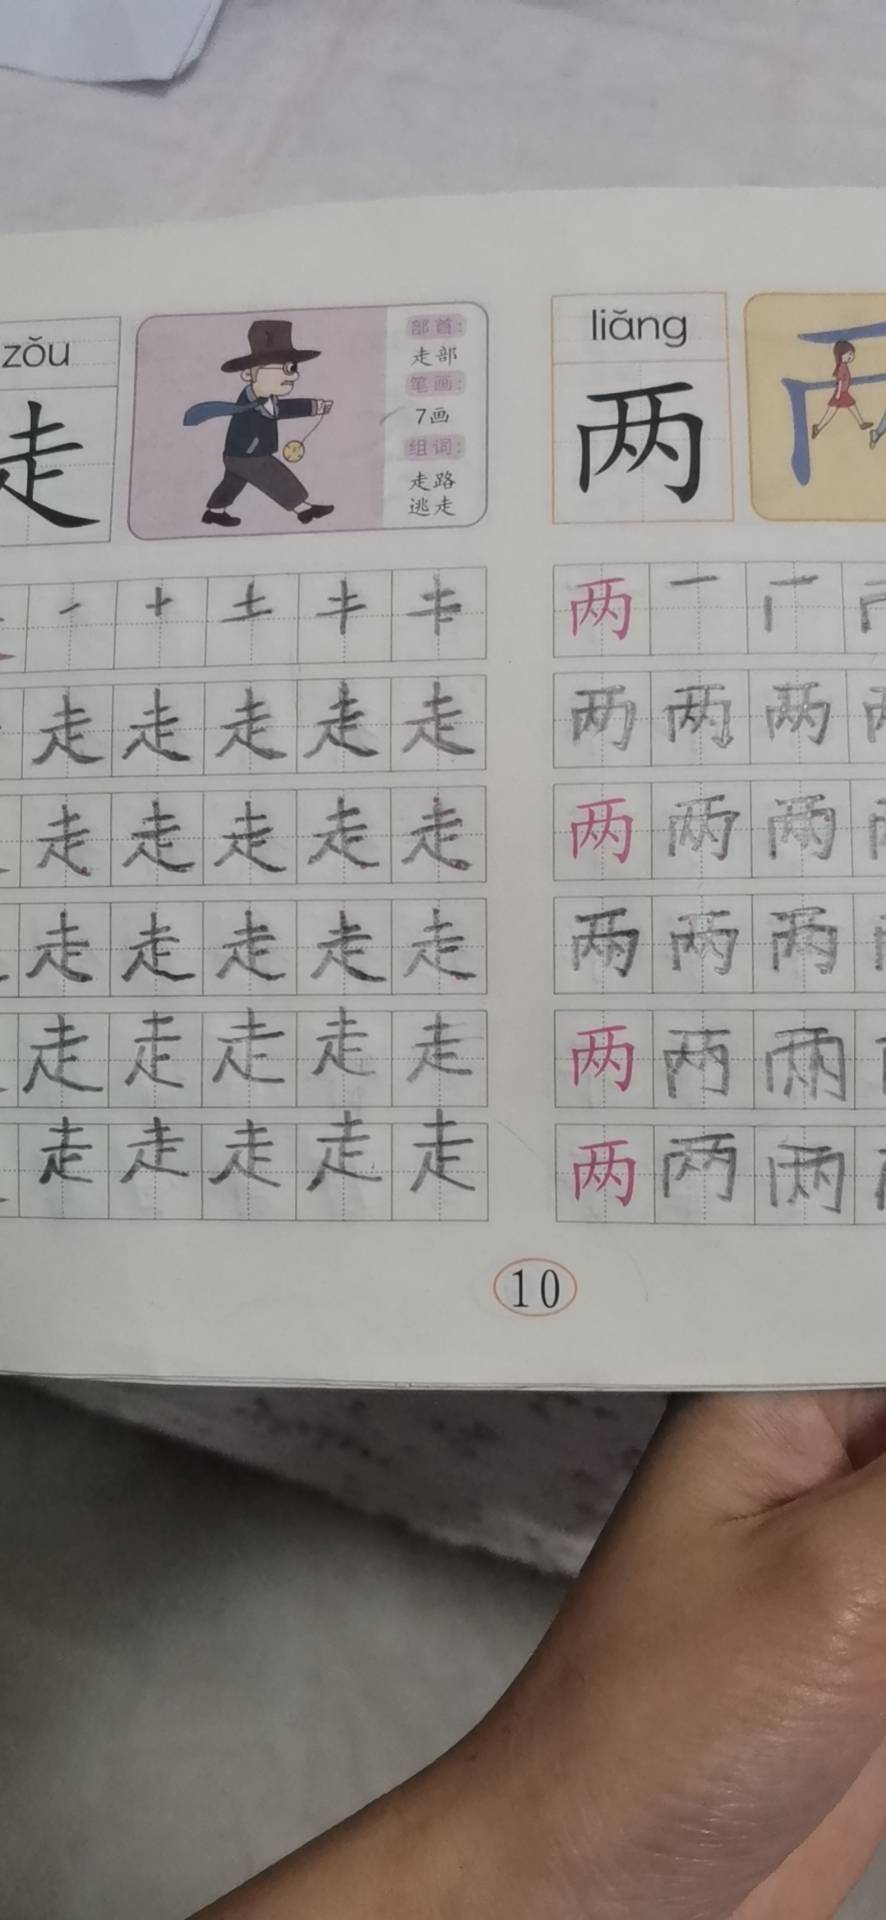 zǒu
走
部首:
走部
笔画:
7画
组词:
走路
逃走
走 走 走 走 走
走 走 走 走 走
走 走 走 走 走
走 走 走 走 走
走 走 走 走 走
liǎng
两
两
两 两 两
两 两 两
两 两 两
两 两 两
两 两 两
10